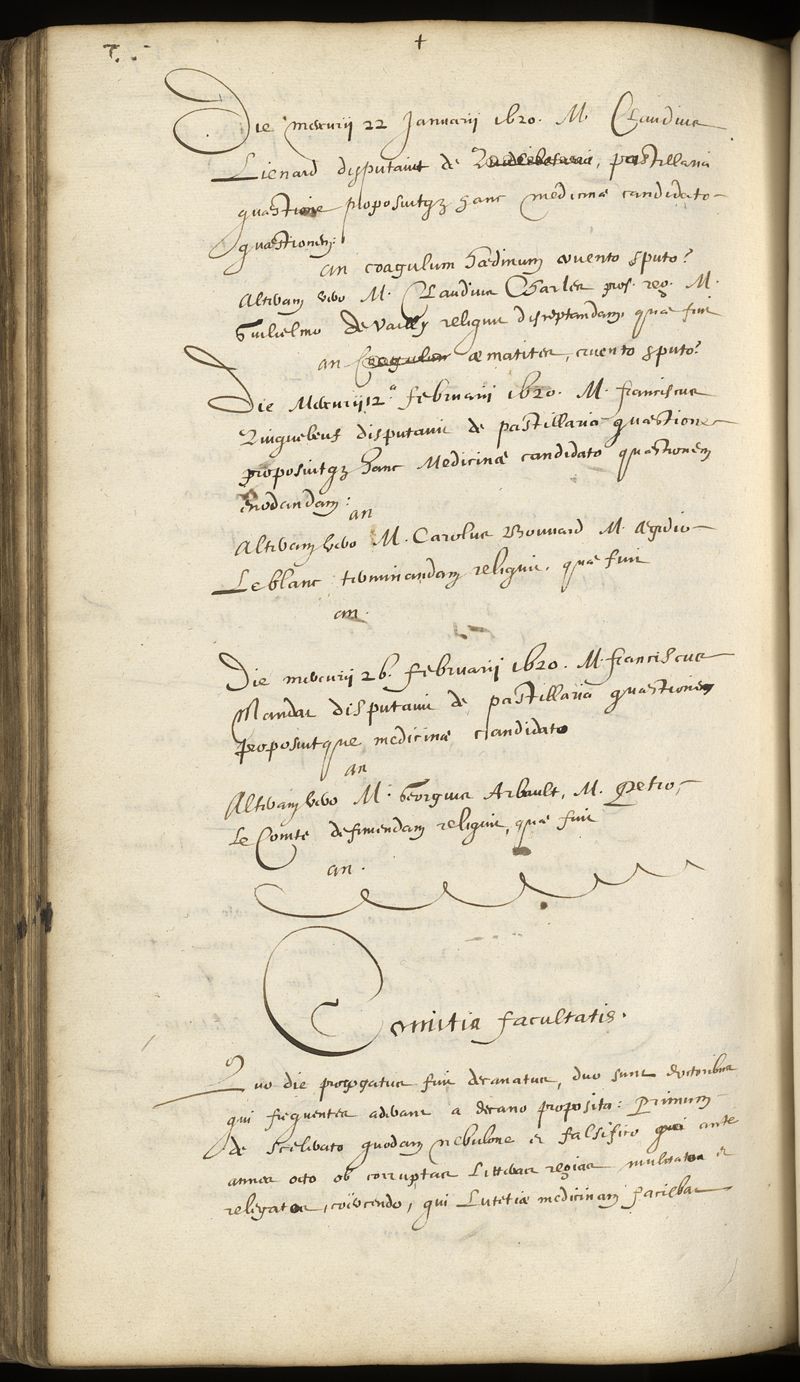 Die mercurij 22 Januarij 1620. M. Claudius
Lienard disputavit de pastillaria
quæstione proposuitqz hanc medicinæ candidato
quæstionem:
an coagulum hædinum cruento sputo?
Alteram vero M. Claudius Charles prof. reg. M.
Guilielmo de Vailly reliquit disceptandam, quæ fuit
an æmatites, cruento sputo?
Die Mercurij 12ª februarij 1620. M. franciscus
Quiquebeuf disputavit de pastillaria quæstione
proposuitqz hanc Medicinæ candidato quæstionem
enodandam:
an
Alteram vero M. Carolus Bouvard M. Ægidio
Leblanc terminandam reliquit. quæ fuit
an.
Die mercurij 26. februarij 1620. M. franciscus
Mandat disputavit de pastillaria quæstionem
proposuitque medicinæ candidato
an
Alteram vero M. Georgius Arbault, M. Petro
le Comte definiendam reliquit, quæ fuit
an.
Comitia facultatis.
Quo die prorogatus fuit decanatus, duo sunt doctoribus
qui frequentes aderant a decano proposita: Primum
de scelerato quodam nebulone et falsifico qui ante
annos octo ob corruptas litteras regias mulctatus et
relegatus, coërcendo, qui Lutetiæ medicinam facilbat